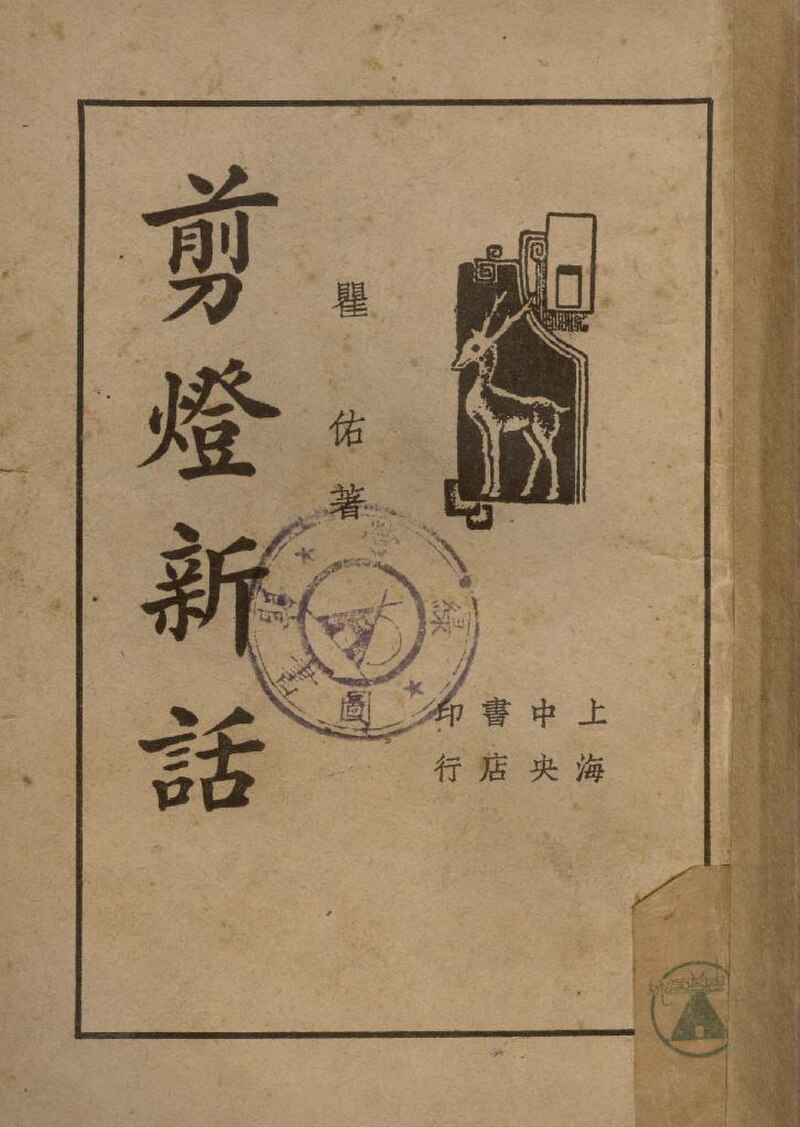 剪燈新話
瞿佑著
上海
中央
書店
印行
圖